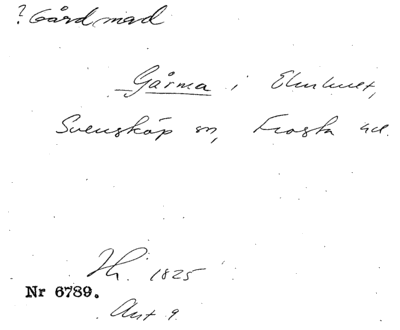 ? Gårdmad
Gårma i
Svensköp sn, Frosta hd.
Hi. 1825
Nr 6789.
Ant 9.